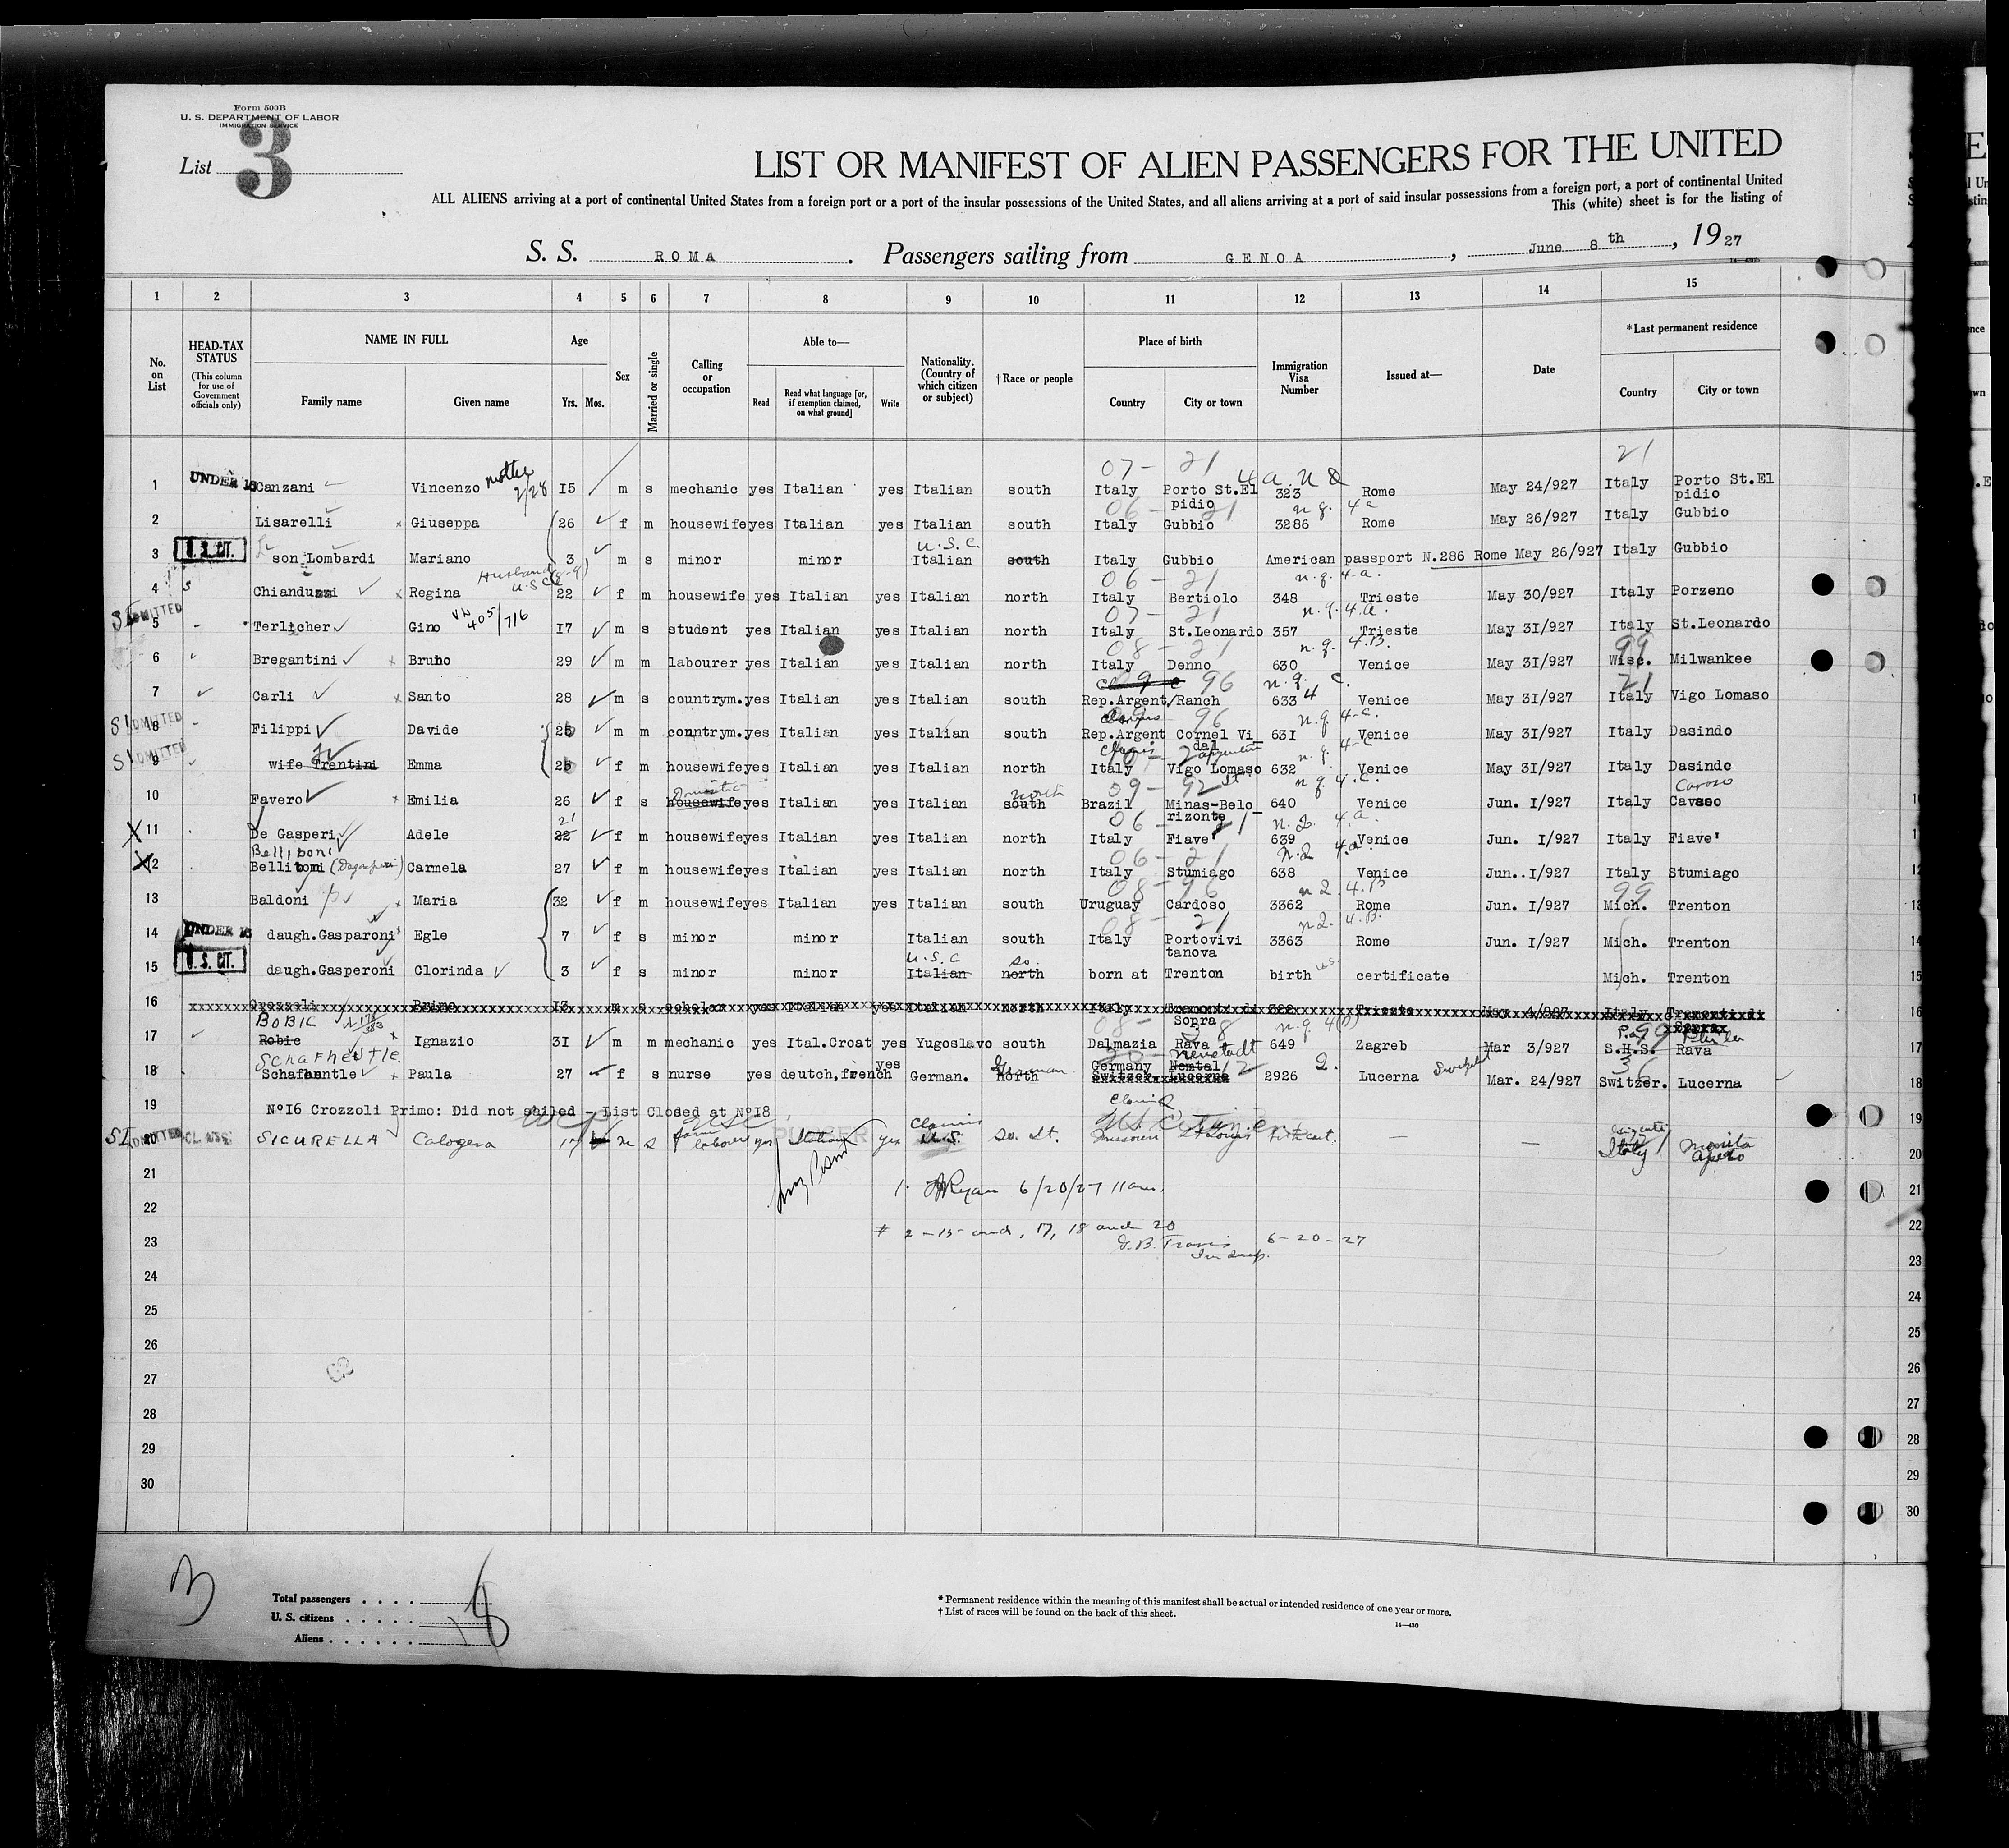 Form 500B
U. S. DEPARTMENT OF LABOR
IMMIGRATION SERVICE
List 3
LIST OR MANIFEST OF ALIEN PASSENGERS FOR THE UNITED
ALL ALIENS arriving at a port of continental United States from a foreign port or a port of the insular possessions of the United States, and all aliens arriving at a port of said insular possessions from a foreign port, a port of continental United
This (white) sheet is for the listing of
S. S. ROMA. Passengers sailing from GENOA, June 8 th, 19 27
14—430b
1 2 3 4 5 6 7 8 9 10 11 12 13 14 15
No. on List
HEAD-TAX STATUS (This column for use of Government officials only)
NAME IN FULL Family name Given name
Age Yrs. Mos.
Sex
Married or single
Calling or occupation
Able to— Read Read what language [or, if exemption claimed, on what ground] Write
Nationality. (Country of which citizen or subject)
†Race or people
Place of birth Country City or town
Immigration Visa Number
Issued at—
Date
*Last permanent residence Country City or town
07 - 21 21
1 UNDER 16 Canzani Vincenzo mother 2/28 15 m s mechanic yes Italian yes Italian south Italy Porto St.El pidio 323 Rome May 24/927 Italy Porto St.El pidio
06 - 21 n.q. 4a
2 Lisarelli x Giuseppa 26 f m housewife yes Italian yes Italian south Italy Gubbio 3286 Rome May 26/927 Italy Gubbio
U.S.C.
3 U.S.CIT. son Lombardi Mariano 3 m s minor minor Italian south Italy Gubbio American passport N.286 Rome May 26/927 Italy Gubbio
Husband U.S.C. 06 - 21 n.q. 4.a.
4 Chianduzzi x Regina 22 f m housewife yes Italian yes Italian north Italy Bertiolo 348 Trieste May 30/927 Italy Porzeno
07 - 21 n.q.4.a.
5 ADMITTED Terlicher Gino 405/716 17 m s student yes Italian yes Italian north Italy St.Leonardo 357 Trieste May 31/927 Italy St.Leonardo
08 - 21 n.q. 4.B. 99
6 Bregantini x Bruno 29 m m labourer yes Italian yes Italian north Italy Denno 630 Venice May 31/927 Wisc. Milwankee
96 n.q. 4 C. 21
7 Carli x Santo 28 m s countrym. yes Italian yes Italian south Rep.Argent/Ranch 633 Venice May 31/927 Italy Vigo Lomaso
96 n.q 4-c.
8 ADMITTED Filippi Davide 26 m m conntrym. yes Italian yes Italian south Rep.Argent Cornel Vi_ dal 631 Venice May 31/927 Italy Dasindo
n.q. 4-c
9 ADMITTED wife Trentini Emma 26 f m housewife yes Italian yes Italian north Italy Vigo Lomaso 632 Venice May 31/927 Italy Dasindo
Domestic north 09 - 92 n.q 4.c. Cavaso
10 Favero x Emilia 26 f s housewife yes Italian yes Italian south Brazil Minas-Belo_ rizonte 640 Venice Jun. 1/927 Italy Cavaso
21 06 - 21 n.2. 4.a.
11 De Gasperi Adele 22 f m housewife yes Italian yes Italian north Italy Fiave' 639 Venice Jun. 1/927 Italy Fiave'
Belliboni 06 - 21 n.2 4.a.
12 Bellitomi (Degasperi) Carmela 27 f m housewife yes Italian yes Italian north Italy Stumiago 638 Venice Jun. 1/927 Italy Stumiago
08 - 96 n2. 4.B 99
13 Baldoni x Maria 32 f m housewife yes Italian yes Italian south Uruguay Cardoso 3362 Rome Jun. 1/927 Mich. Trenton
08 - 21 n2. 4.B.
14 UNDER 16 daugh.Gasparoni Egle 7 f s minor minor Italian south Italy Portovivi tanova 3363 Rome Jun. 1/927 Mich. Trenton
U.S.C so.
15 U.S.CIT. daugh.Gasperoni Clorinda 3 f s minor minor Italian north born at Trenton birth certificate Mich. Trenton
16 Crozzoli Primo 13 m s scholar yes Italian yes Italian North Italy Tramonti di Sopra 322 Trieste May 4/927 Italy Tramonti di Sopra
BOBIC 08 - n.q 4(B) 99
17 Robic x Ignazio 31 m m mechanic yes Ital.Croat yes Yugoslavo south Dalmazia Rava 649 Zagreb Mar 3/927 S.H.S. Rava
SCHAFHEUTLE. German Neustadt
18 Schafhantle x Paula 27 f s nurse yes deutch,french yes German. North Germany Nemtal Switzer Lucerna 2926 Lucerna Mar. 24/927 Switzer. Lucerna
19 Nº16 Crozzoli Primo: Did not sailed - List Closed at Nº18
Claims US Citizen
20 ADMITTED SICURELLA Calogera 17 m s farm laborer yes Italian yes U.S. So. It. Missouri St Louis birth cert. — — Italy
21 1. Ryan 6/20/27 11am.
22
23 # 2-15 and, 17, 18 and 20 J.B. Travis Im Insp. 6-20-27
24
25
26
27
28
29
30
3
Total passengers
U. S. citizens
Aliens
18
* Permanent residence within the meaning of this manifest shall be actual or intended residence of one year or more.
† List of races will be found on the back of this sheet.
14—430